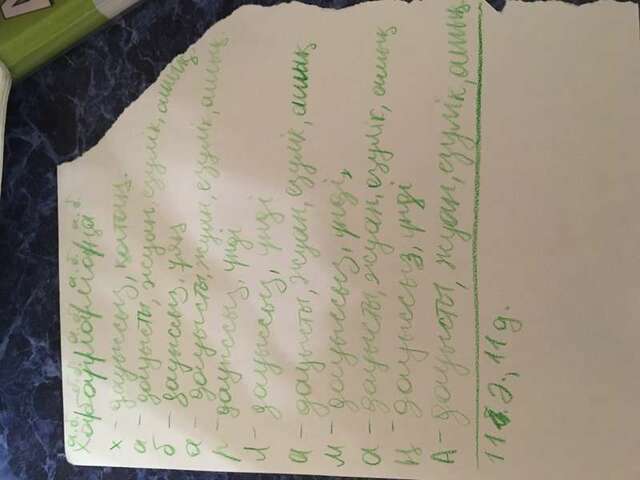 Хабарламаңа
х – дауыссыз, қатаң.
а – дауысты, жуан, езулік, ашық
б – дауыссыз, ұяң
а – дауысты, жуан, езулік, ашық
р – дауыссыз, үнді
л – дауыссыз, үнді
а – дауысты, жуан, езулік, ашық
м – дауыссыз, үнді,
а – дауысты, жуан, езулік, ашық
ң – дауыссыз, үнді
А – дауысты, жуан, езулік, ашық
11 ә., 11 д.